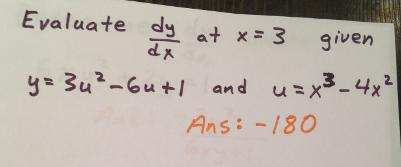 Evaluate dy/dx at x = 3 given
y = 3u² - 6u + 1 and u = x³ - 4x²
Ans: -180